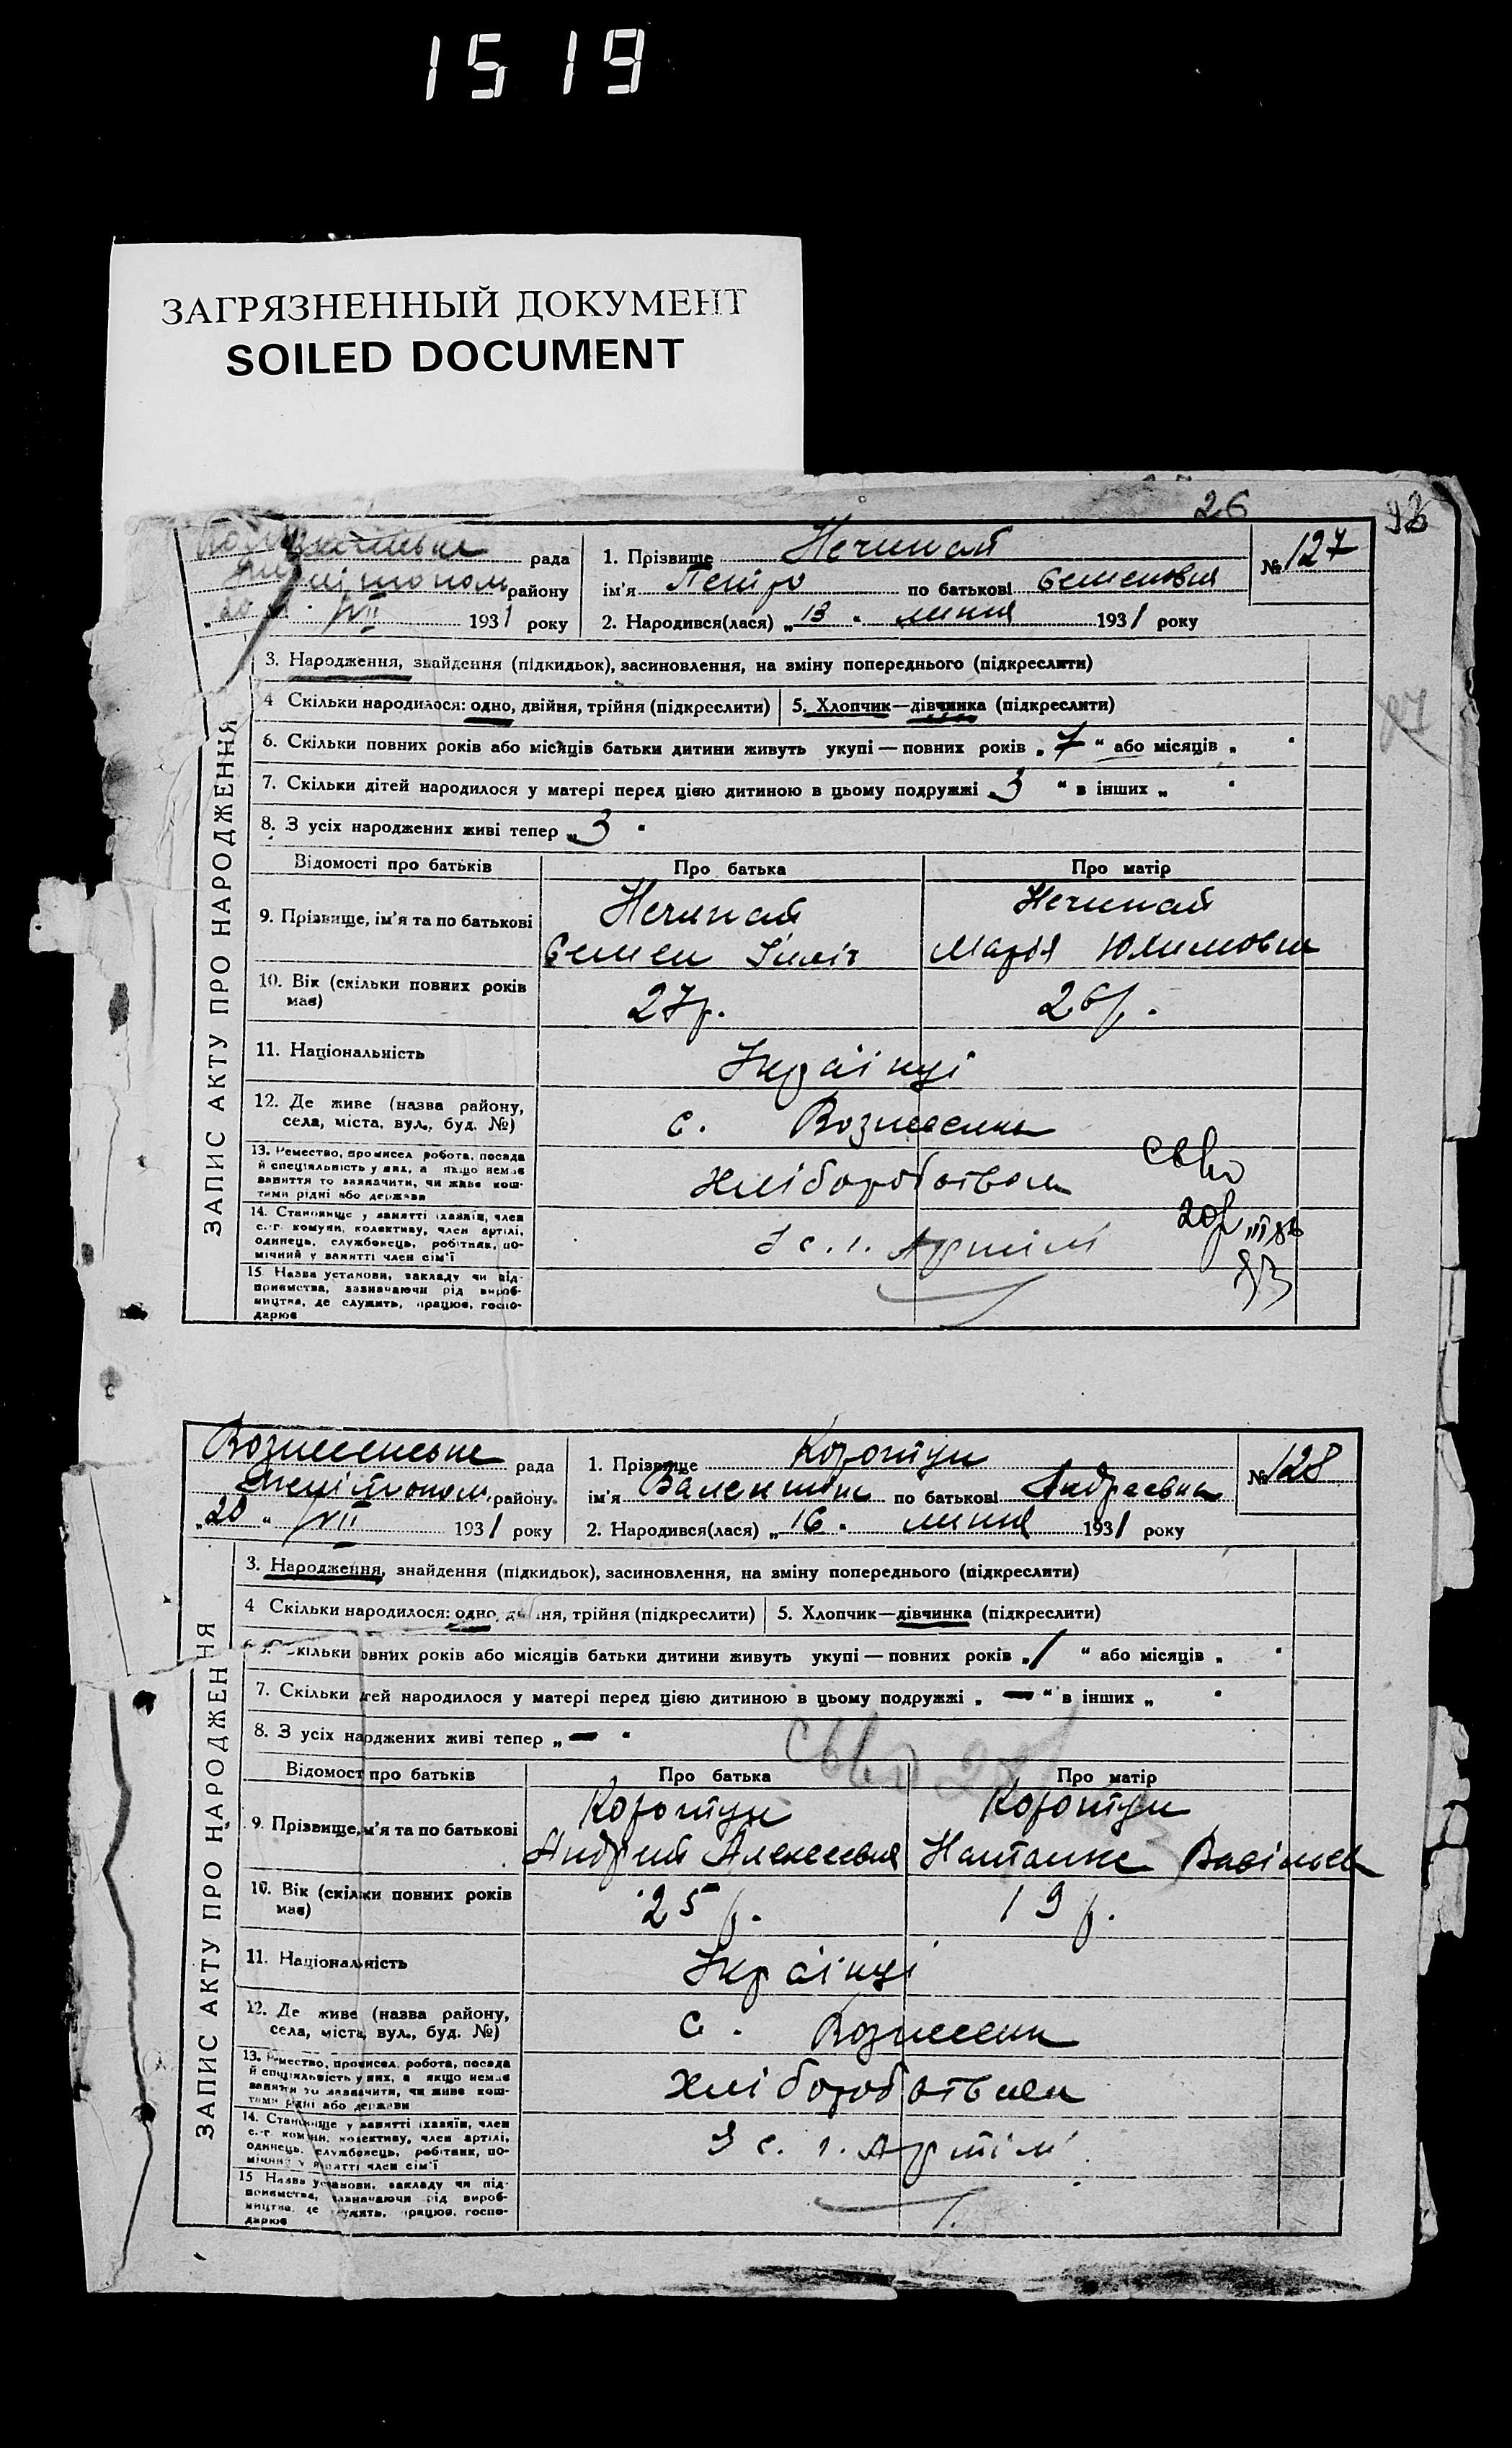 1519
ЗАГРЯЗНЕННЫЙ ДОКУМЕНТ
SOILED DOCUMENT
26
рада
району
"20" VII 1931 року
1. Прізвище Нечипай
ім'я Петро по батькові Семенович
2. Народився(лася) „13" липня 1931 року
№ 127
ЗАПИС АКТУ ПРО НАРОДЖЕННЯ
3. Народження, знайдення (підкидьок), засиновлення, на зміну попереднього (підкреслити)
4 Скільки народилося: одно, двійня, трійня (підкреслити) 5. Хлопчик—дівчинка (підкреслити)
27
6. Скільки повних років або місяців батьки дитини живуть укупі — повних років „7" або місяців „ "
7. Скільки дітей народилося у матері перед цією дитиною в цьому подружжі „3" в інших „ "
8. З усіх народжених живі тепер „3"
Відомості про батьків Про батька Про матір
9. Прізвище, ім'я та по батькові
Нечипай
Семен Ілліч
Нечипай
Марія
10. Вік (скільки повних років має)
27р. 26р.
11. Національність
Українці
12. Де живе (назва району, села, міста, вул., буд. №)
с. Вознесенка
13. Ремество, промисел робота, посада
й спеціяльність у них, а якщо немає
заняття то зазначити, чи живе кош-
тами рідні або держава
хліборобством
14. Становище у занятті (хазяїн, член
с.-г. комуни, колективу, член артілі,
одинець, службовець, робітник, по-
мічний у занятті член сім'ї
З с. г. Артілі
15 Назва установи, закладу чи під-
приємства, зазначаючи рід вироб-
ництва, де служить, працює, госпо-
дарює
Вознесенська рада
Мелітополь. району
„20" VII 1931 року
1. Прізвище Коротун
ім'я Валентина по батькові Андреевна
2. Народився(лася) „16" липня 1931 року
№ 128
ЗАПИС АКТУ ПРО НАРОДЖЕННЯ
3. Народження, знайдення (підкидьок), засиновлення, на зміну попереднього (підкреслити)
4 Скільки народилося: одно, двійня, трійня (підкреслити) 5. Хлопчик—дівчинка (підкреслити)
6. Скільки повних років або місяців батьки дитини живуть укупі — повних років „1" або місяців „ "
7. Скільки дітей народилося у матері перед цією дитиною в цьому подружжі „—" в інших „ "
8. З усіх народжених живі тепер „—"
Відомості про батьків Про батька Про матір
9. Прізвище, ім'я та по батькові
Коротун
Андрей Алексеевич
Коротун
10. Вік (скільки повних років має)
25 р. 19 р.
11. Національність
Українці
12. Де живе (назва району, села, міста, вул., буд. №)
с. Вознесенк
13. Ремество, промисел, робота, посада
й спеціяльність у них, а якщо немає
заняття то зазначити, чи живе кош-
тами рідні або держави
хліборобством
14. Становище у занятті (хазяїн, член
с.-г комуни, колективу, член артілі,
одинець, службовець, робітник, по-
мічний у занятті член сім'ї
З с. г. Артілі
15 Назва установи, закладу чи під-
приємства, зазначаючи рід вироб-
ництва, де служить, працює, госпо-
дарює